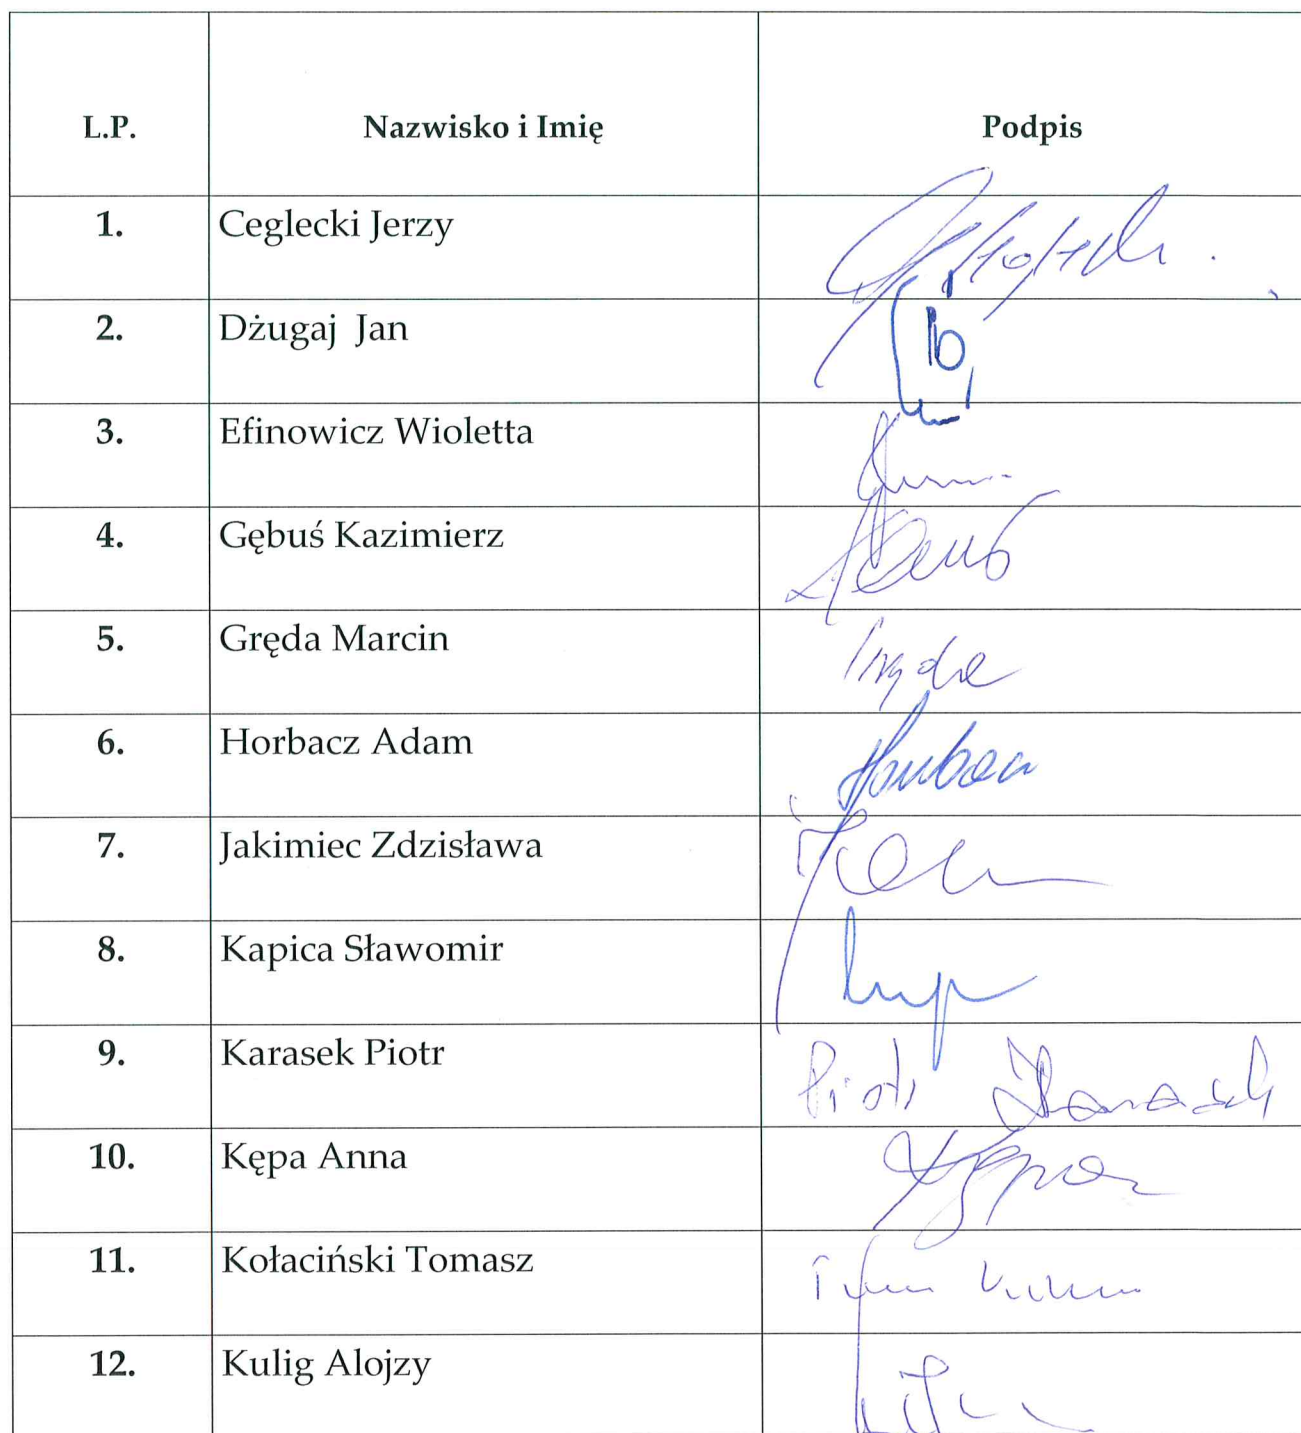 L.P. Nazwisko i Imię Podpis
1. Ceglecki Jerzy
2. Dżugaj Jan
3. Efinowicz Wioletta
4. Gębuś Kazimierz
5. Gręda Marcin
6. Horbacz Adam
7. Jakimiec Zdzisława
8. Kapica Sławomir
9. Karasek Piotr Piotr Karasek
10. Kępa Anna Kępa
11. Kołaciński Tomasz
12. Kulig Alojzy